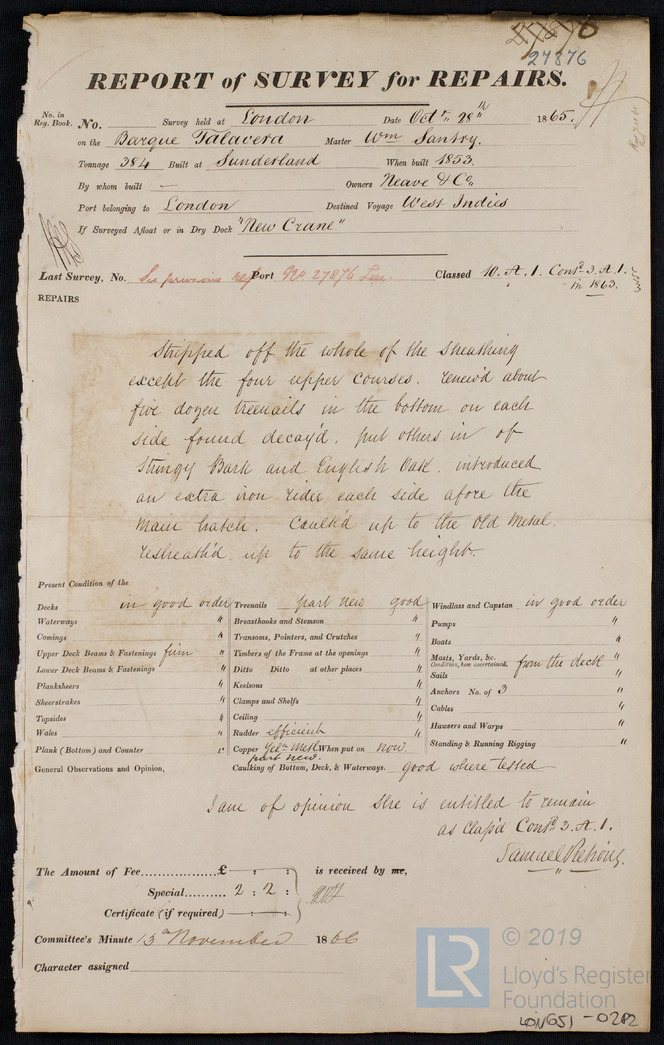 27876
REPORT of SURVEY for REPAIRS.
No. in Reg. Book. No. Survey held at London Date Octr. 28th 1865.
on the Barque Talavera Master Wm Santry.
Tonnage 384 Built at Sunderland When built 1853.
By whom built — Owners Neave & Co.
Port belonging to London Destined Voyage West Indies
If Surveyed Afloat or in Dry Dock "New Crane"
Last Survey, No. Port No. 27876 Lon. Classed 10. A. 1. Contd. 3. A. 1.
in 1863.
REPAIRS
Stripped off the whole of the Sheathing
except the four upper courses. renew'd about
five dozen treenails in the bottom on each
side found decay'd, put others in of
Stringy Bark and English Oak. introduced
an extra iron rider each side afore the
Main hatch. Caulk'd up to the Old Metal.
resheath'd up to the same height.
Present Condition of the
Decks in good order Treenails part new good Windlass and Capstan in good order
Waterways " Breasthooks and Stemson " Pumps "
Comings " Transoms, Pointers, and Crutches " Boats "
Upper Deck Beams & Fastenings firm " Timbers of the Frame at the openings " Masts, Yards, &c. from the deck "
Condition, how ascertained,
Lower Deck Beams & Fastenings " Ditto Ditto at other places " Sails "
Planksheers " Keelsons " Anchors No. of 3 "
Sheerstrakes " Clamps and Shelfs " Cables "
Topsides " Ceiling " Hawsers and Warps "
Wales " Rudder efficient " Standing & Running Rigging "
Plank (Bottom) and Counter " Copper Yelw Metl When put on now
part new.
General Observations and Opinion, Caulking of Bottom, Deck, & Waterways. good where tested
I am of opinion she is entitled to remain
as Class'd Contd. 3. A. 1.
Samuel
The Amount of Fee £ : : is received by me,
Special 2 : 2 :
Certificate (if required) — : — :
Committee's Minute 13th November 1866
Character assigned
LR © 2019
Lloyd's Register
Foundation
LON651-0282